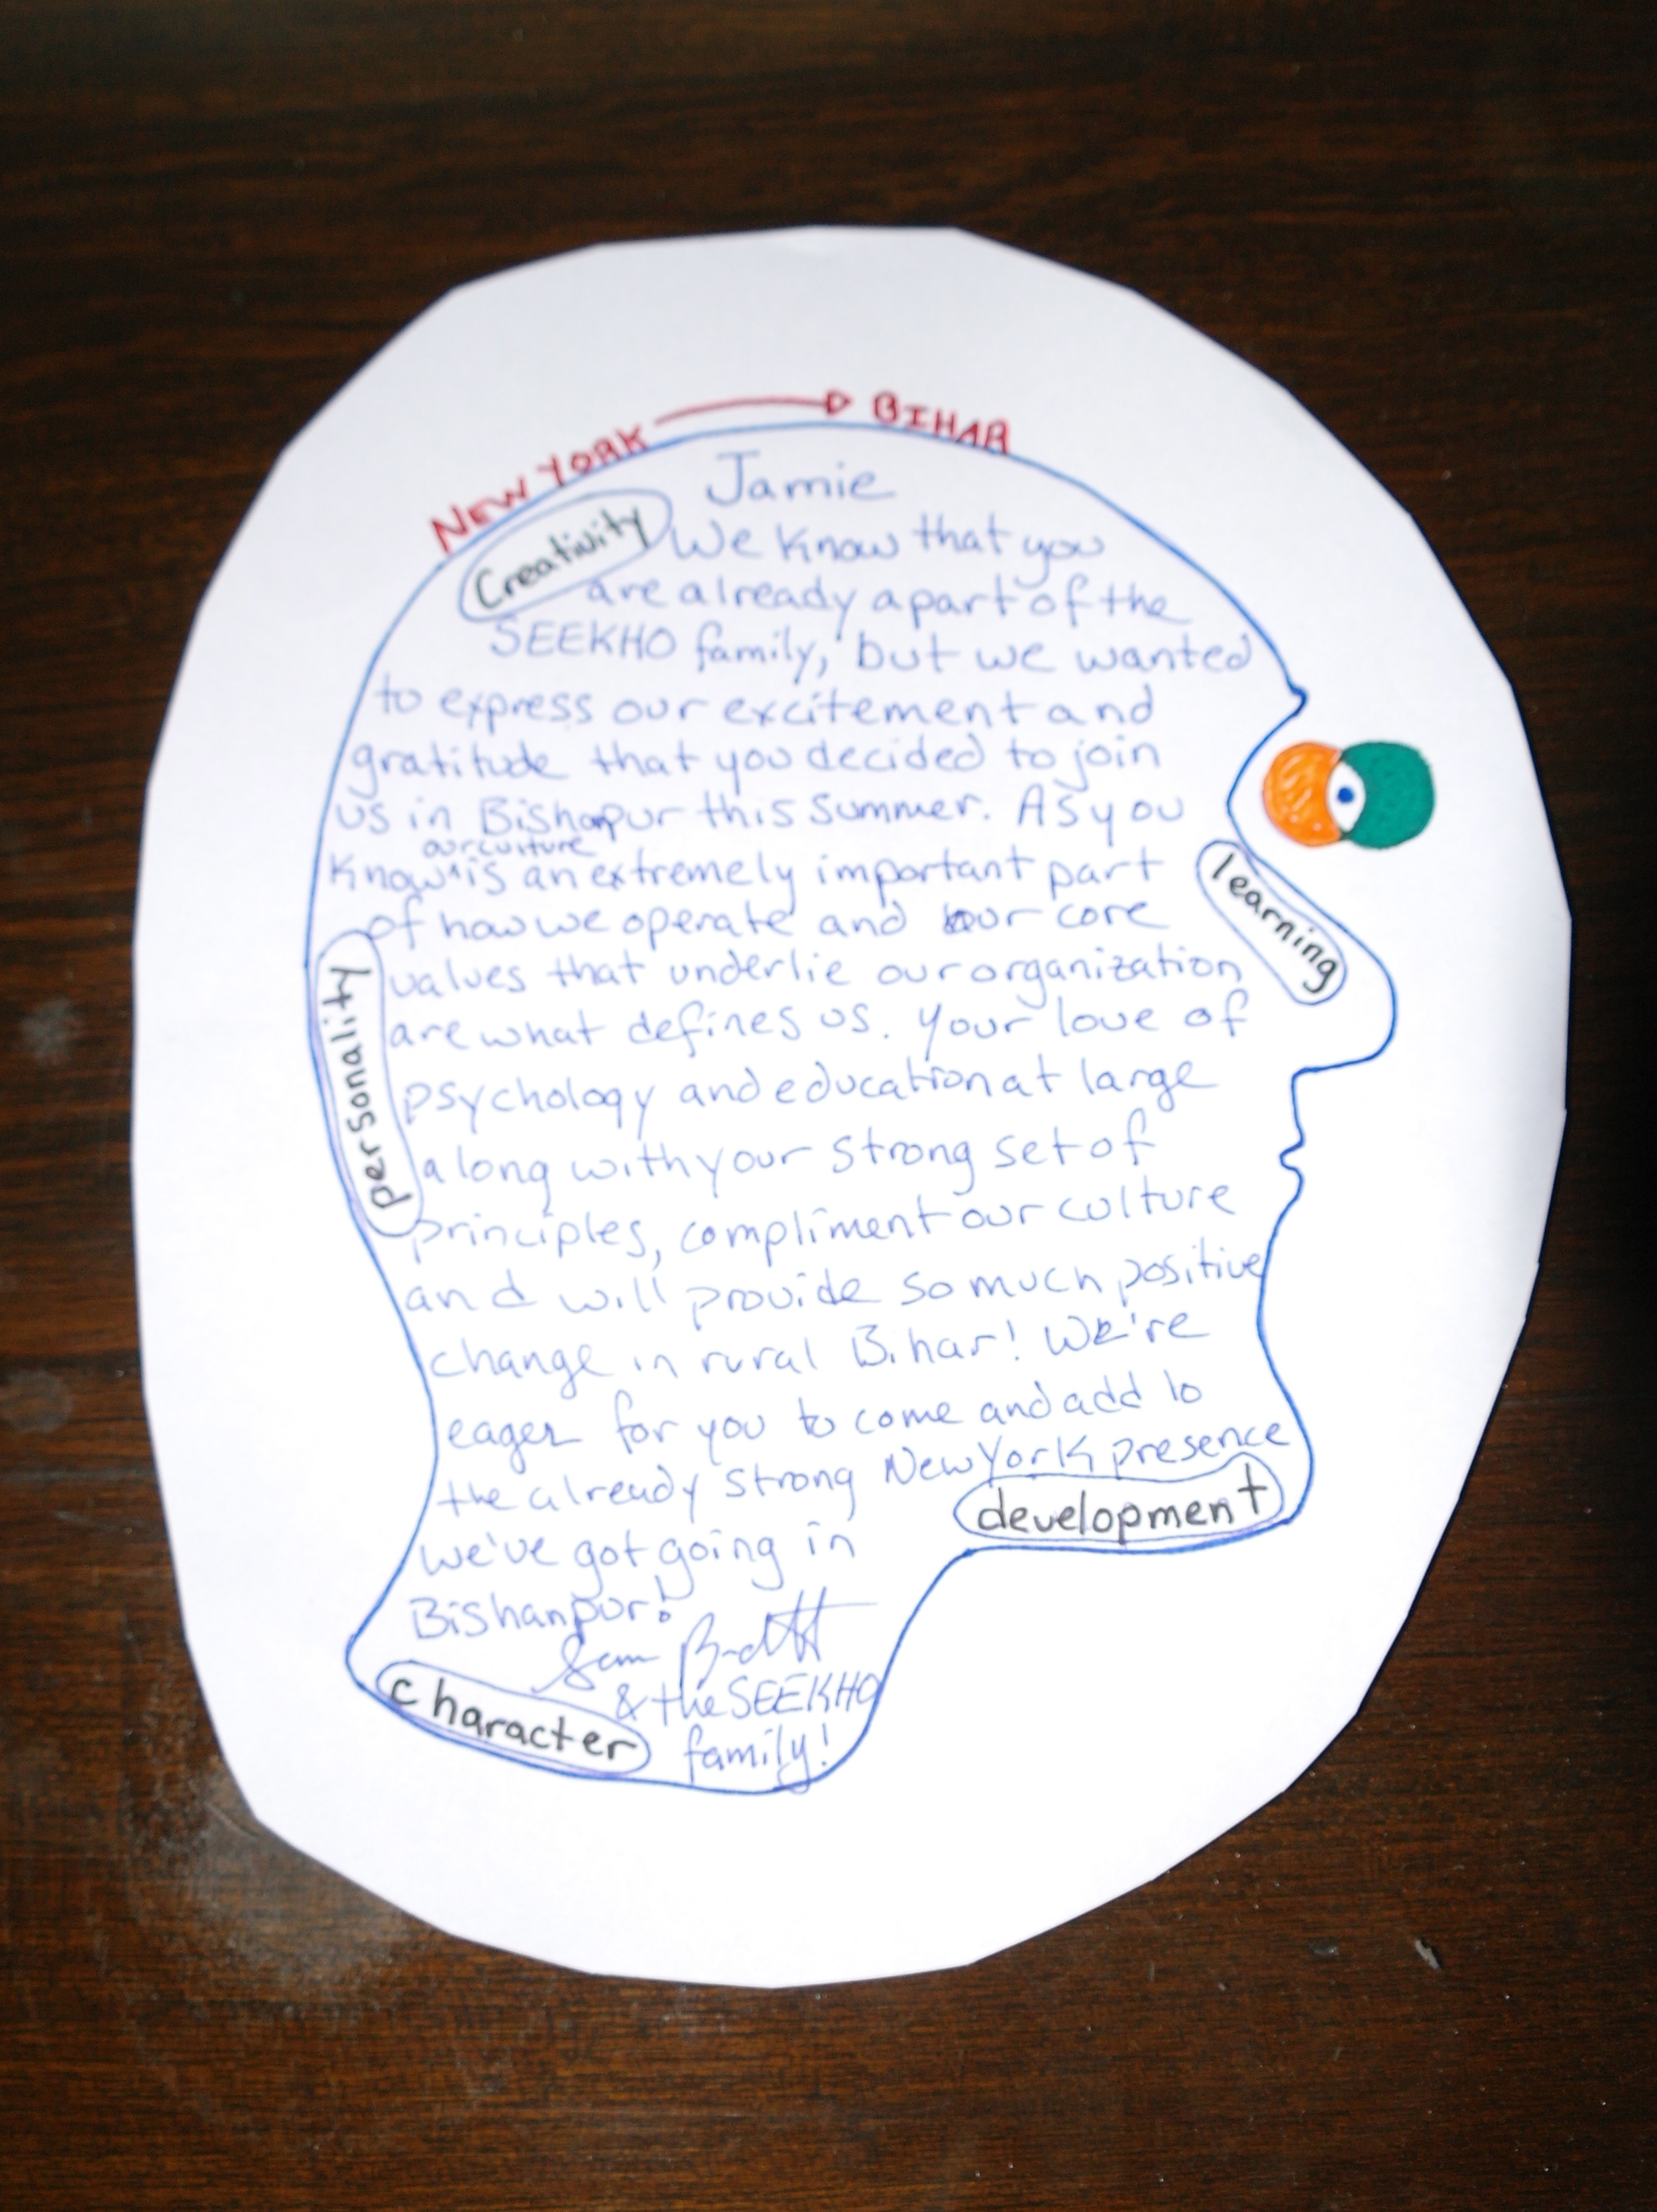 NEW YORK → BIHAR
Jamie
Creativity
We know that you
are already a part of the
SEEKHO family, but we wanted
to express our excitement and
gratitude that you decided to join
us in Bishanpur this summer. As you
our culture
know ^ is an extremely important part
of how we operate and our core
values that underlie our organization
are what defines us. Your love of
psychology and education at large
along with your strong set of
principles, compliment our culture
and will provide so much positive
change in rural Bihar! We're
eager for you to come and add to
the already strong New York presence
we've got going in
Bishanpur!
Sam
& the SEEKHO
family!
learning
personality
development
character